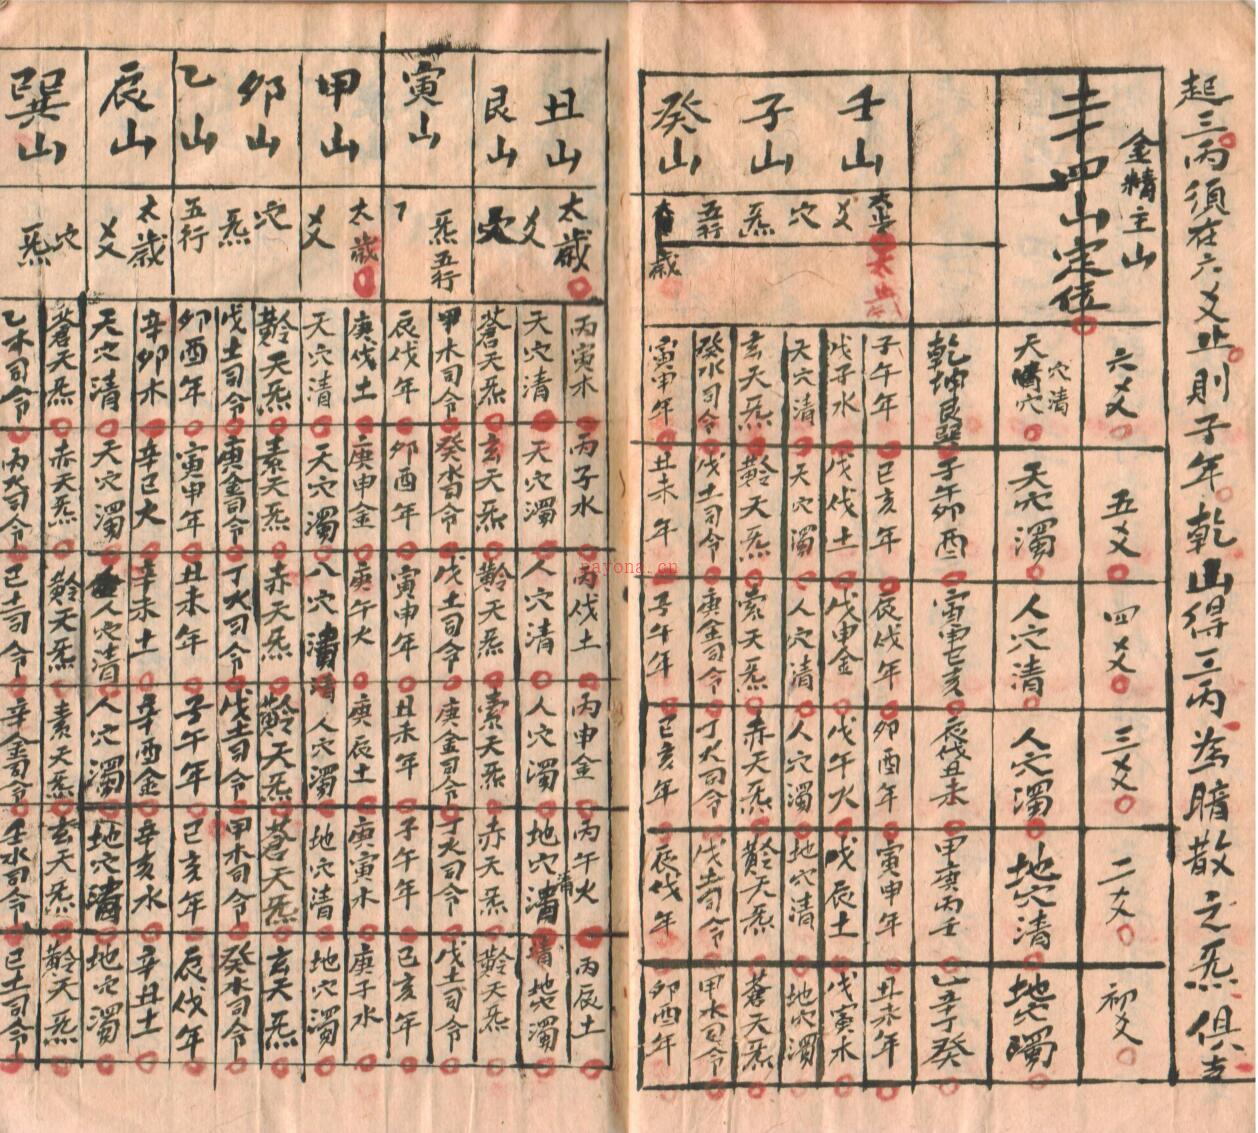 起三丙須在六爻止則子年乾山得三丙為暗散之炁俱吉
金精主山
二十四山定位
六爻 五爻 四爻 三爻 二爻 初爻
天穴清 天穴濁 人穴清 人穴濁 地穴清 地穴濁
乾坤艮巽 子午卯酉 寅申巳亥 辰戌丑未 甲庚丙壬 乙辛丁癸
壬山 子山 癸山
太歲 爻 穴 炁 五行 太歲
子午年 巳亥年 辰伐年 卯酉年 寅申年 丑未年
戊子水 戊伐土 戊申金 戊午火 戊辰土 戊寅木
天穴清 天穴濁 人穴清 人穴濁 地穴清 地穴濁
玄天炁 黅天炁 素天炁 赤天炁 黅天炁 蒼天炁
癸水司令 戊土司令 庚金司令 丁火司令 戊土司令 甲木司令
寅申年 丑未年 子午年 巳亥年 辰伐年 卯酉年
丑山 艮山 寅山 甲山 卯山 乙山 辰山 巽山
太歲 爻 穴 炁 五行
太歲 爻 穴 炁 五行
太歲 爻 穴 炁
丙寅木 丙子水 丙伐土 丙申金 丙午火 丙辰土
天穴清 天穴濁 人穴清 人穴濁 地穴清 地穴濁
蒼天炁 玄天炁 黅天炁 素天炁 赤天炁 黅天炁
甲木司令 癸水司令 戊土司令 庚金司令 丁火司令 戊土司令
辰伐年 卯酉年 寅申年 丑未年 子午年 巳亥年
庚伐土 庚申金 庚午火 庚辰土 庚寅木 庚子水
天穴清 天穴濁 人穴清 人穴濁 地穴清 地穴濁
黅天炁 素天炁 赤天炁 黅天炁 蒼天炁 玄天炁
戊土司令 庚金司令 丁火司令 戊土司令 甲木司令 癸水司令
卯酉年 寅申年 丑未年 子午年 巳亥年 辰伐年
辛卯木 辛巳火 辛未土 辛酉金 辛亥水 辛丑土
天穴清 天穴濁 人穴清 人穴濁 地穴清 地穴濁
蒼天炁 赤天炁 黅天炁 素天炁 玄天炁 黅天炁
乙木司令 丙火司令 己土司令 辛金司令 壬水司令 己土司令